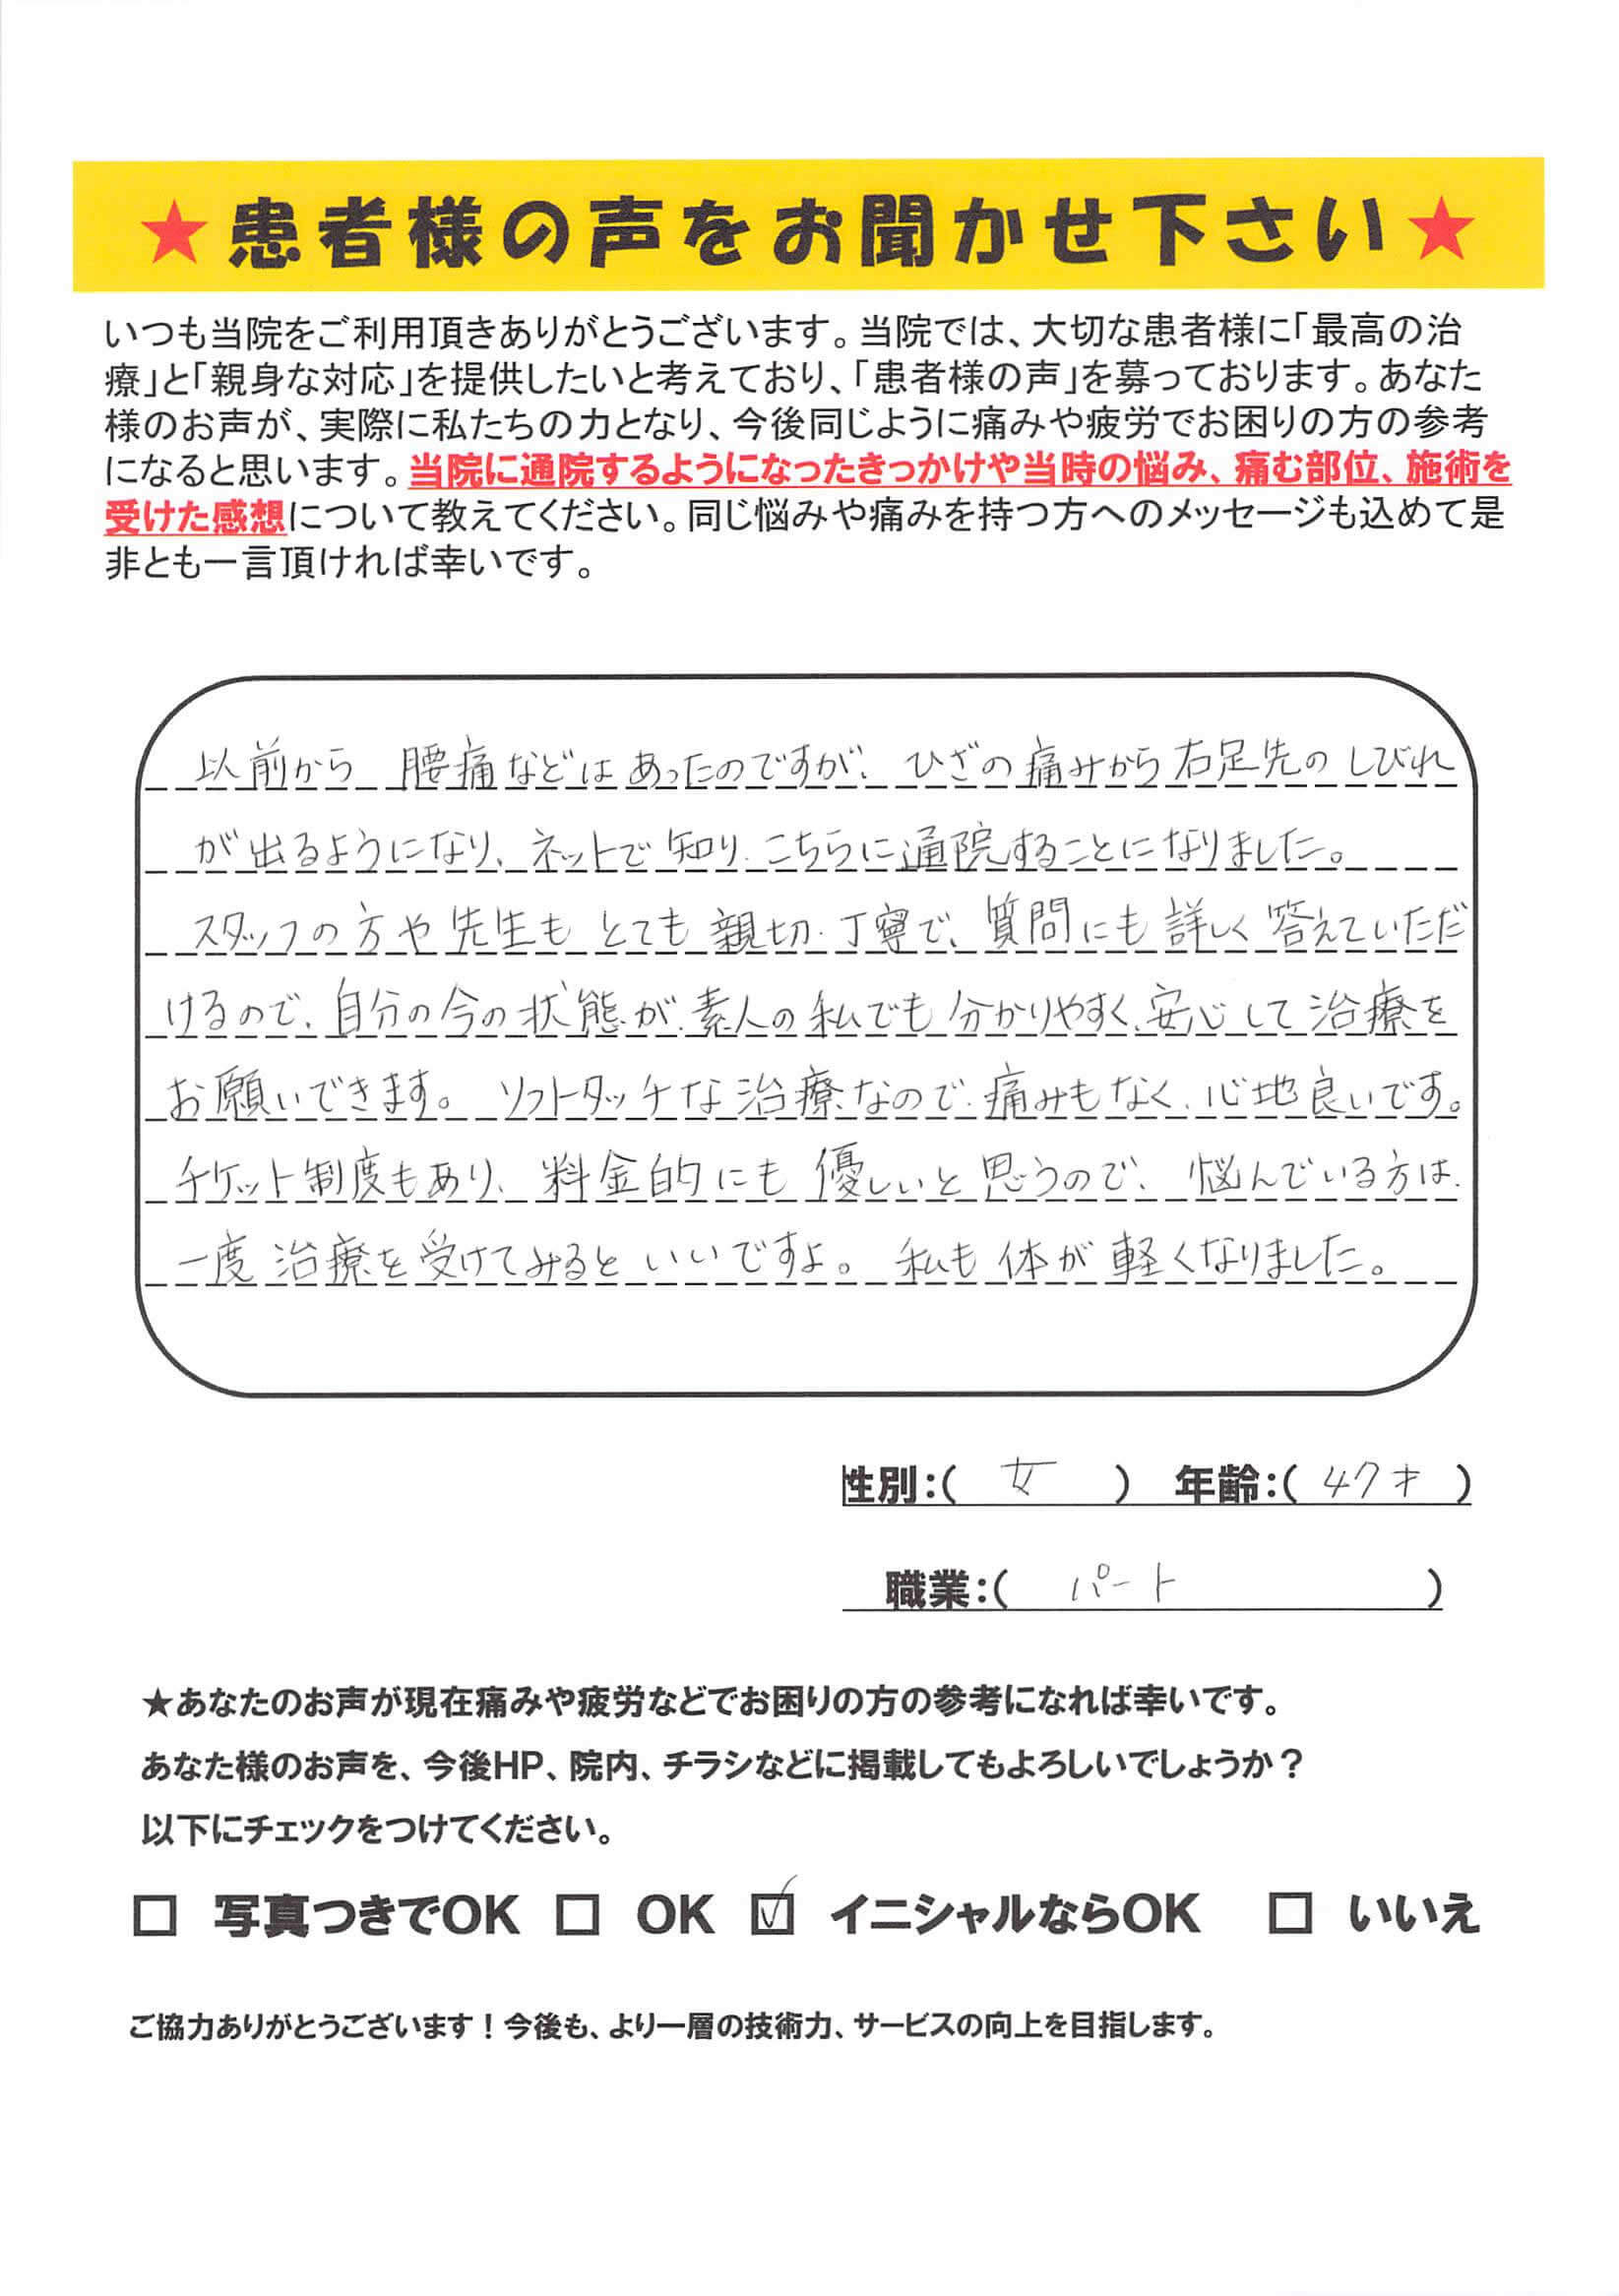 ★患者様の声をお聞かせ下さい★
いつも当院をご利用頂きありがとうございます。当院では、大切な患者様に「最高の治
療」と「親身な対応」を提供したいと考えており、「患者様の声」を募っております。あなた
様のお声が、実際に私たちの力となり、今後同じように痛みや疲労でお困りの方の参考
になると思います。当院に通院するようになったきっかけや当時の悩み、痛む部位、施術を
受けた感想について教えてください。同じ悩みや痛みを持つ方へのメッセージも込めて是
非とも一言頂ければ幸いです。
以前から 腰痛などはあったのですが、ひざの痛みから右足先のしびれ
が出るようになり、ネットで知り、こちらに通院することになりました。
スタッフの方や先生も とても親切・丁寧で、質問にも詳しく答えていただ
けるので、自分の今の状態が、素人の私でも分かりやすく、安心して治療を
お願いできます。 ソフトタッチな治療なので、痛みもなく、心地良いです。
チケット制度もあり、料金的にも優しいと思うので、悩んでいる方は、
一度治療を受けてみるといいですよ。 私も体が軽くなりました。
性別:( 女 ) 年齢:( 47才 )
職業:( パート )
★あなたのお声が現在痛みや疲労などでお困りの方の参考になれば幸いです。
あなた様のお声を、今後HP、院内、チラシなどに掲載してもよろしいでしょうか？
以下にチェックをつけてください。
□ 写真つきでOK □ OK ☑ イニシャルならOK □ いいえ
ご協力ありがとうございます！今後も、より一層の技術力、サービスの向上を目指します。